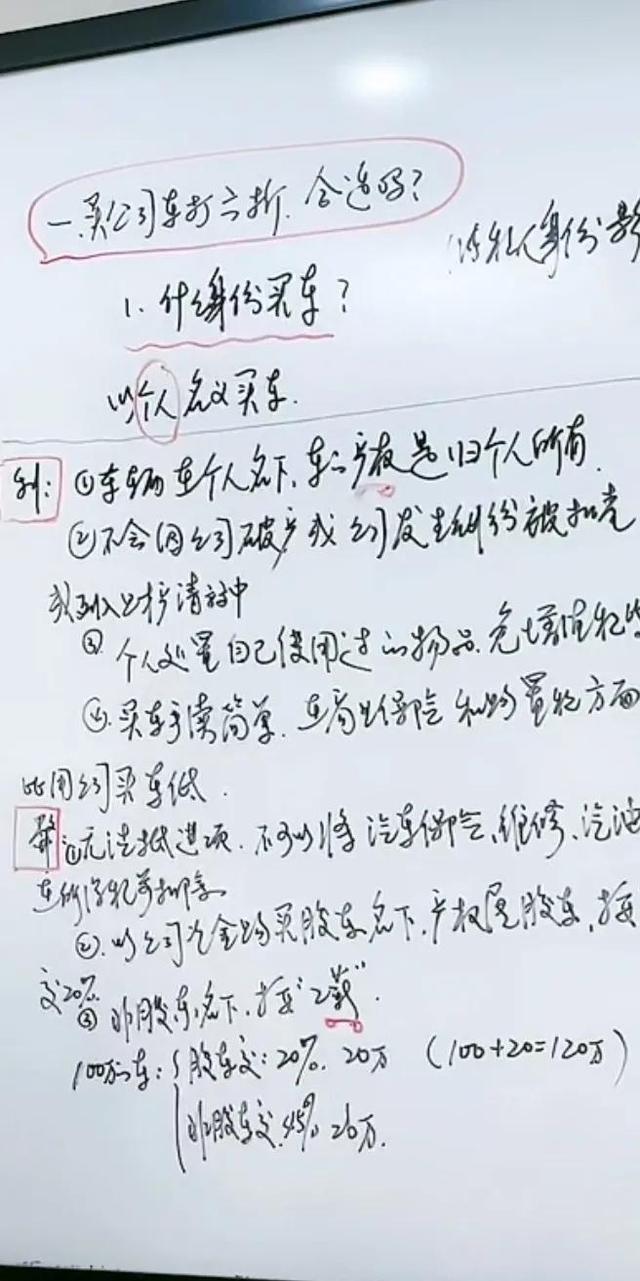 一.买公司车打六折.合适吗?
1.什么身份买车?
以个人名义买车.
利:①车辆在个人名下,车的产权是归个人所有.
②不会因公司破产或公司发生纠纷被扣走
或列入破产清算中
③个人处置自己使用过的物品.免增值税
④.买车手续简单.车商业保险和购置税方面
比用公司买车低.
弊①无法抵进项.不可以将汽车保险、维修、汽油
在所得税前扣除
②.以公司资金购买股东名下,产权属股东,按
交20%
③非股东名下.按"工薪".
100万的车:股东交:20%. 20万 (100+20=120万)
非股东交.45% 26万.